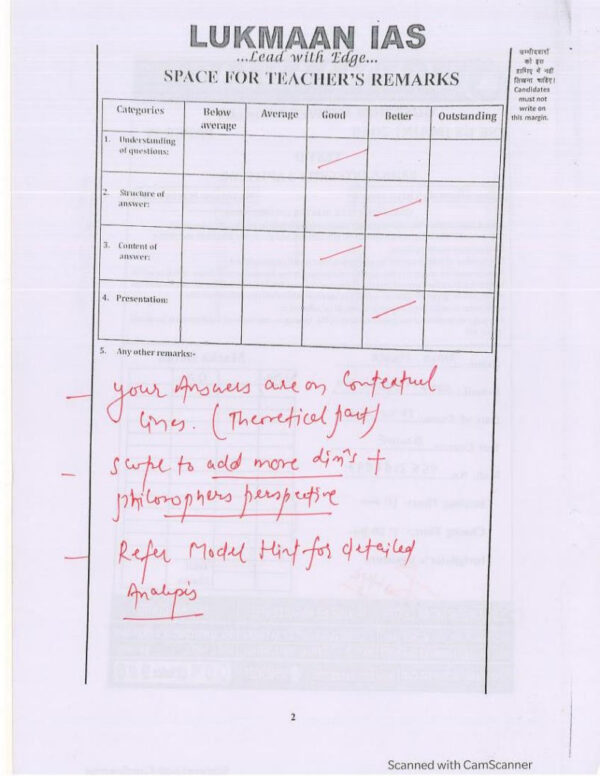 LUKMAAN IAS
...Lead with Edge...
SPACE FOR TEACHER'S REMARKS
उम्मीदवारों
को इस
हाशिए में नहीं
लिखना चाहिए।
Candidates
must not
write on
this margin.
Categories Below average Average Good Better Outstanding
1. Understanding
of questions:
2. Structure of
answer:
3. Content of
answer:
4. Presentation:
5. Any other remarks:-
— your Answers are on Contextual
lines. (Theoretical part)
— scope to add more dimns +
philosophers perspective
— Refer Model Hint for detailed
Analysis
2
Scanned with CamScanner